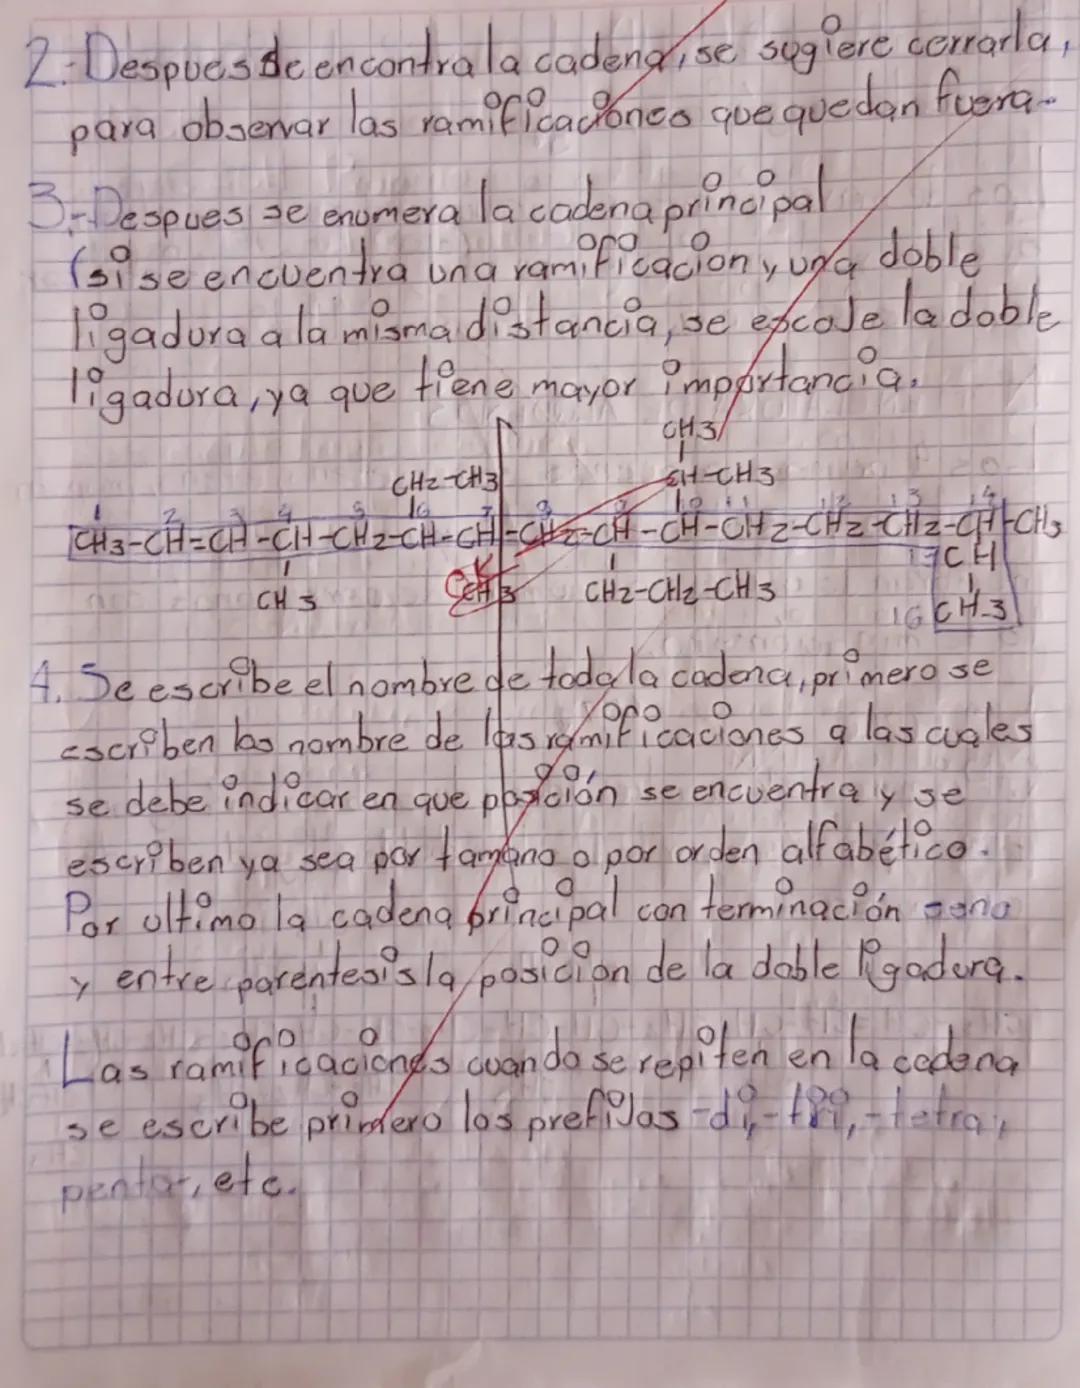 2.-Despues de encontra la cadena, se sugiere cerrarla,
para obsenvar las ramificaciones que quedan fuera.
3.-Despues se enumera la cadena principal
(si se encuentra una ramificacion y una doble
ligadura a la misma distancia, se escoJe la doble
ligadura, ya que tiene mayor importancia.
CH3
CH2-CH3 CH-CH3
1 2 3 4 5 6 7 8 9 10 11 12 13 14
CH3-CH=CH-CH-CH2-CH-CH-CH2-CH-CH-CH2-CH2-CH2-CH-CH3
CH3 CH3 CH2-CH2-CH3 CH
16 CH3
4. Se escribe el nombre de toda la cadena, primero se
escriben los nombre de las ramificaciones a las cuales
se debe indicar en que posición se encuentra y se
escriben ya sea por tamano o por orden alfabético.
Por ultimo la cadena principal con terminación eno
y entre parentesis la posicion de la doble ligadura.
Las ramificaciones cuando se repiten en la cadena
se escribe primero los prefiJos -di,-tri,-tetra,
penta, etc.